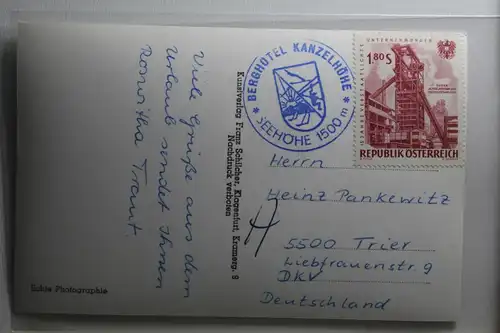 Viele Grüße aus dem
Urlaub sendet Ihnen
Roswitha Tramt
Echte Photographie
Kunstverlag Franz Schilcher, Klagenfurt, Kramerg. 8
Nachdruck verboten
* BERGHOTEL KANZELHÖHE *
SEEHÖHE 1500 m
1.80 S
REPUBLIK ÖSTERREICH
Herrn
Heinz Pankewitz
5500 Trier
Liebfrauenstr 9
DKV
Deutschland